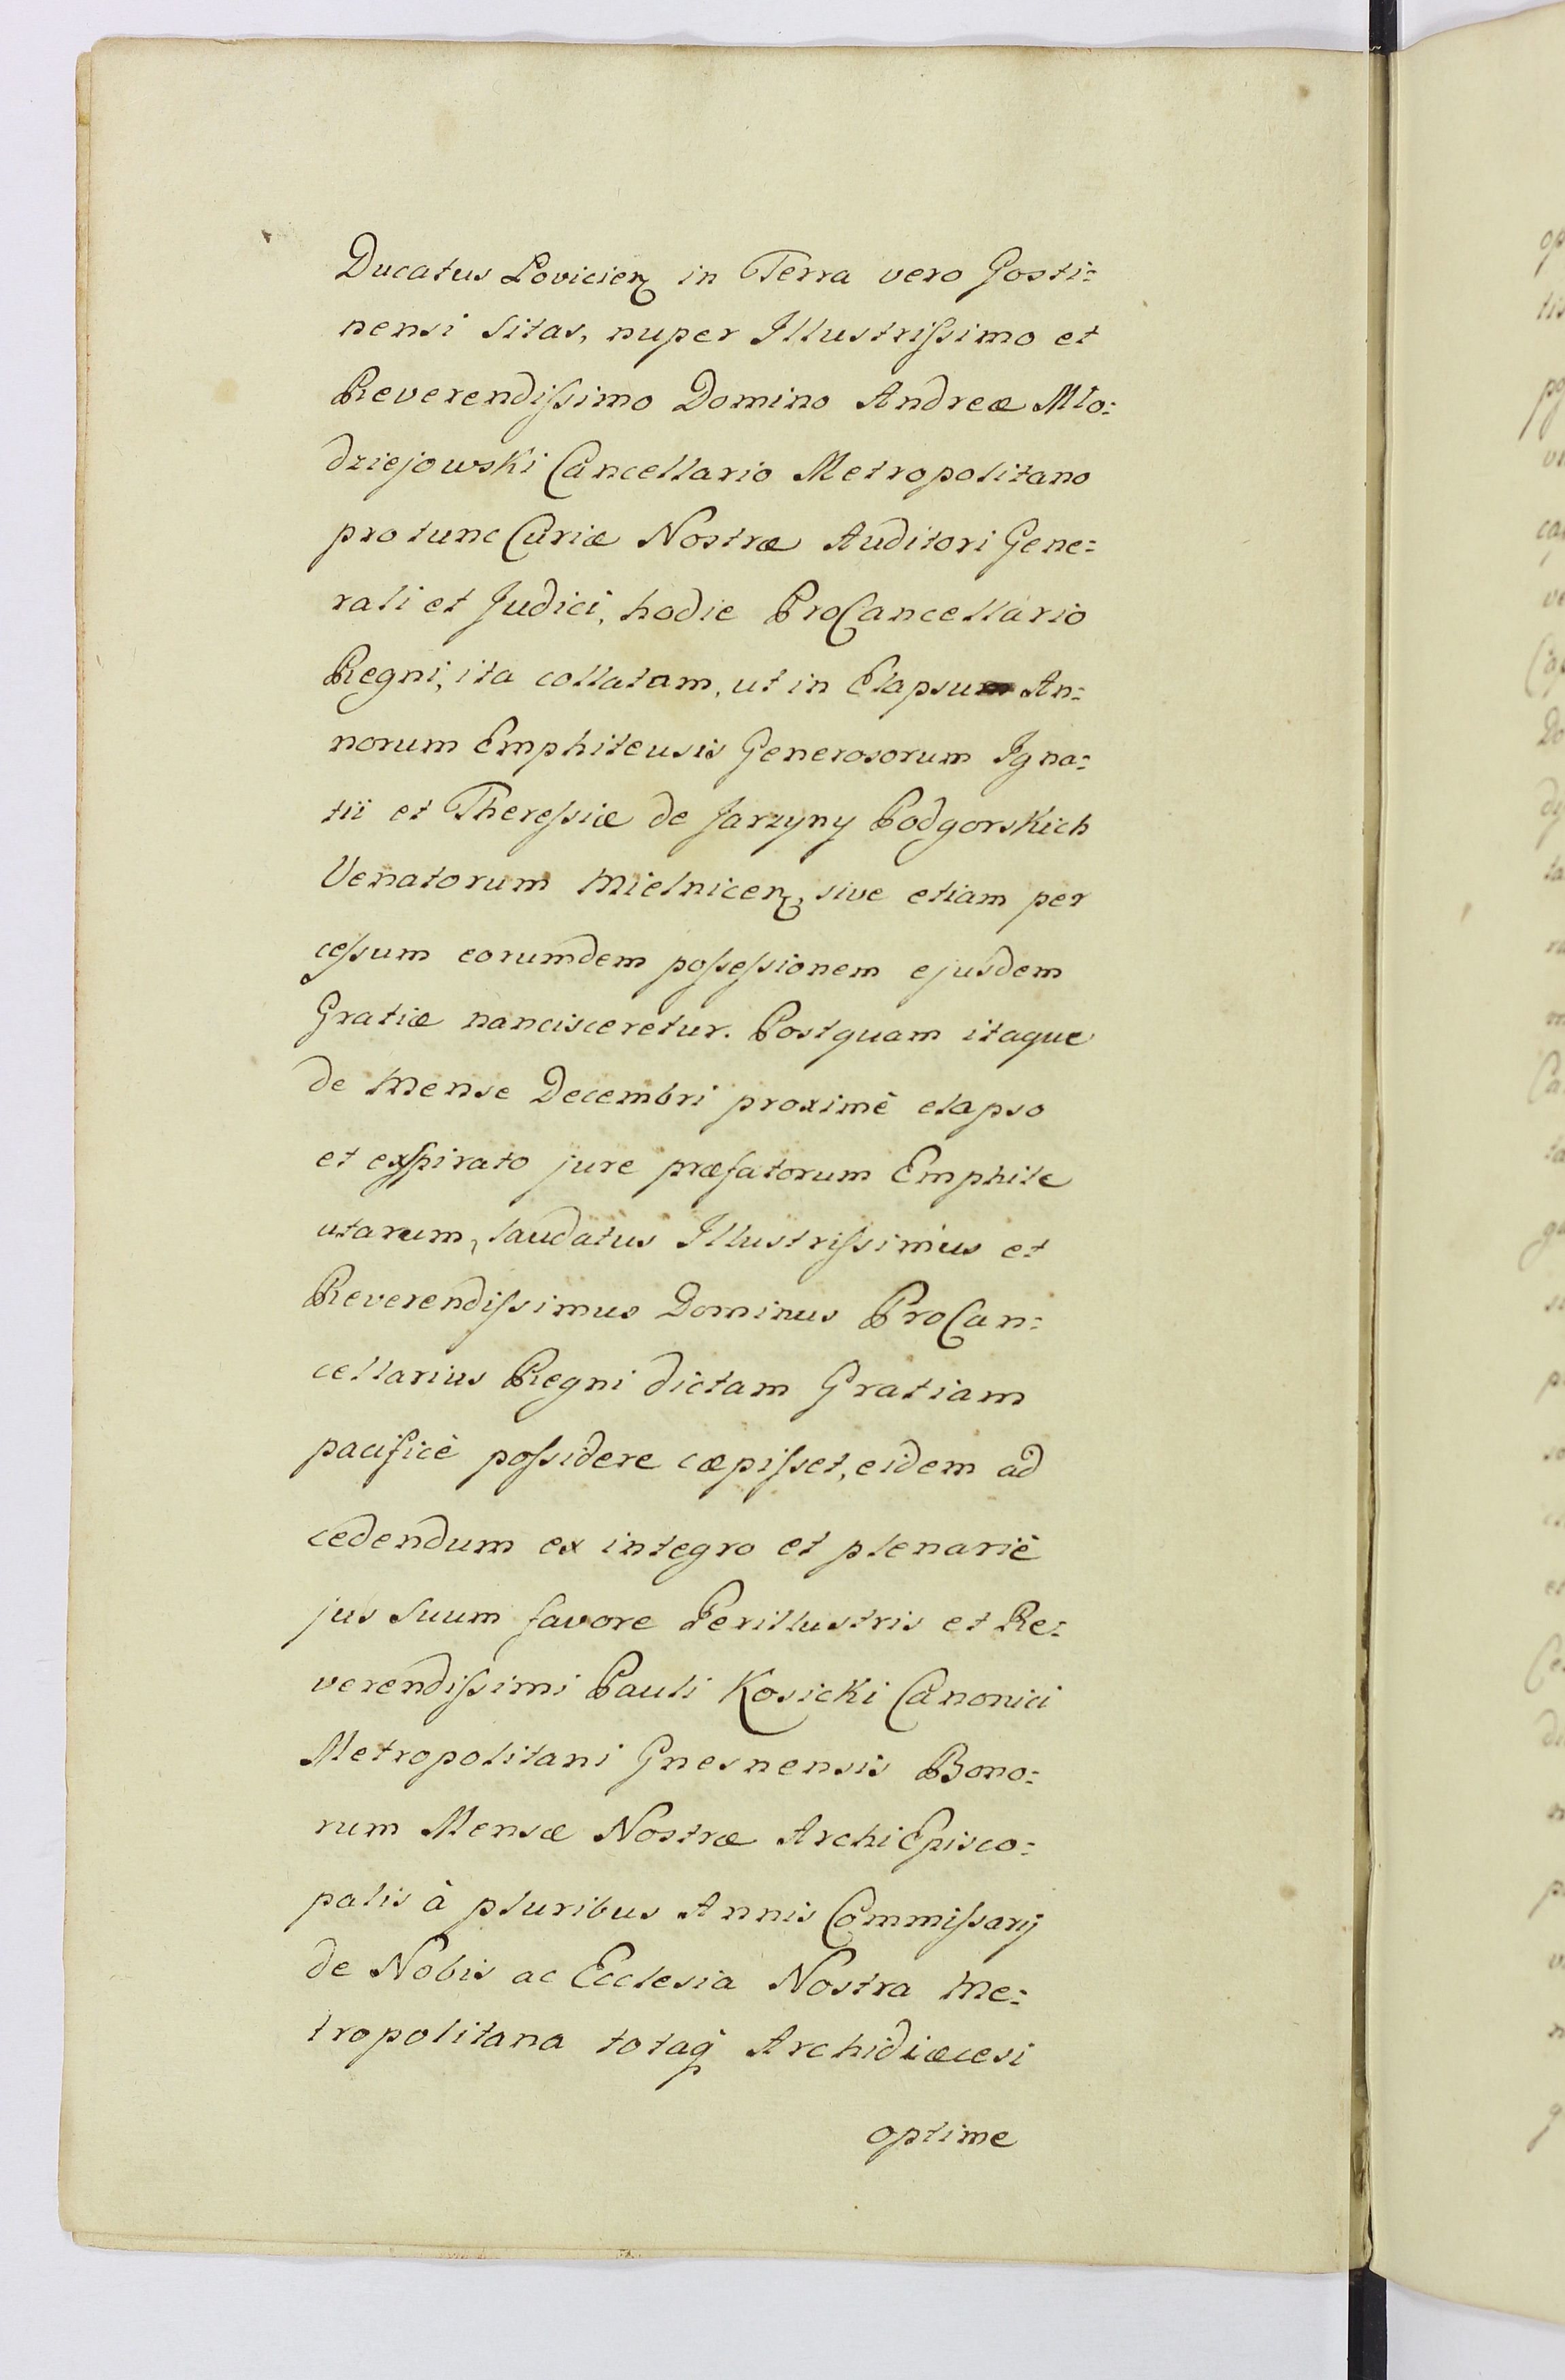 Ducatus Lovicien in Terra vero Gosti:
nensi Sitas, nuper Illustrissimo et
Reverendissimo Domino Andreæ Mło:
dziejowski Cancellario Metropolitano
pro tunc Curiæ Nostræ Auditori Gene:
rali et Judici, hodie ProCancellario
Regni, ita collatam, ut in Elapsum An:
norum Emphiteusis Generosorum Igna:
tii et Theressiæ de Jarzyny Podgorskich
Venatorum Mielnicen, sive etiam per
cessum eorumdem possessionem ejusdem
Gratiæ nancisceretur. Postquam itaque
de Mense Decembri proximè elapso
et exspirato jure præfatorum Emphite
utarum, laudatus Illustrissimus et
Reverendissimus Dominus ProCan:
cellarius Regni dictam Gratiam
pacificè possidere cæpisset, eidem ad
cedendum ex integro et plenariè
jus Suum favore Perillustris et Re:
verendissimi Pauli Kosicki Canonici
Metropolitani Gnesnensis Bono:
rum Mensæ Nostræ ArchiEpisco:
palis à pluribus Annis Commissarij
de Nobis ac Ecclesia Nostra Me:
tropolitana totaq Archidiæcesi
optime